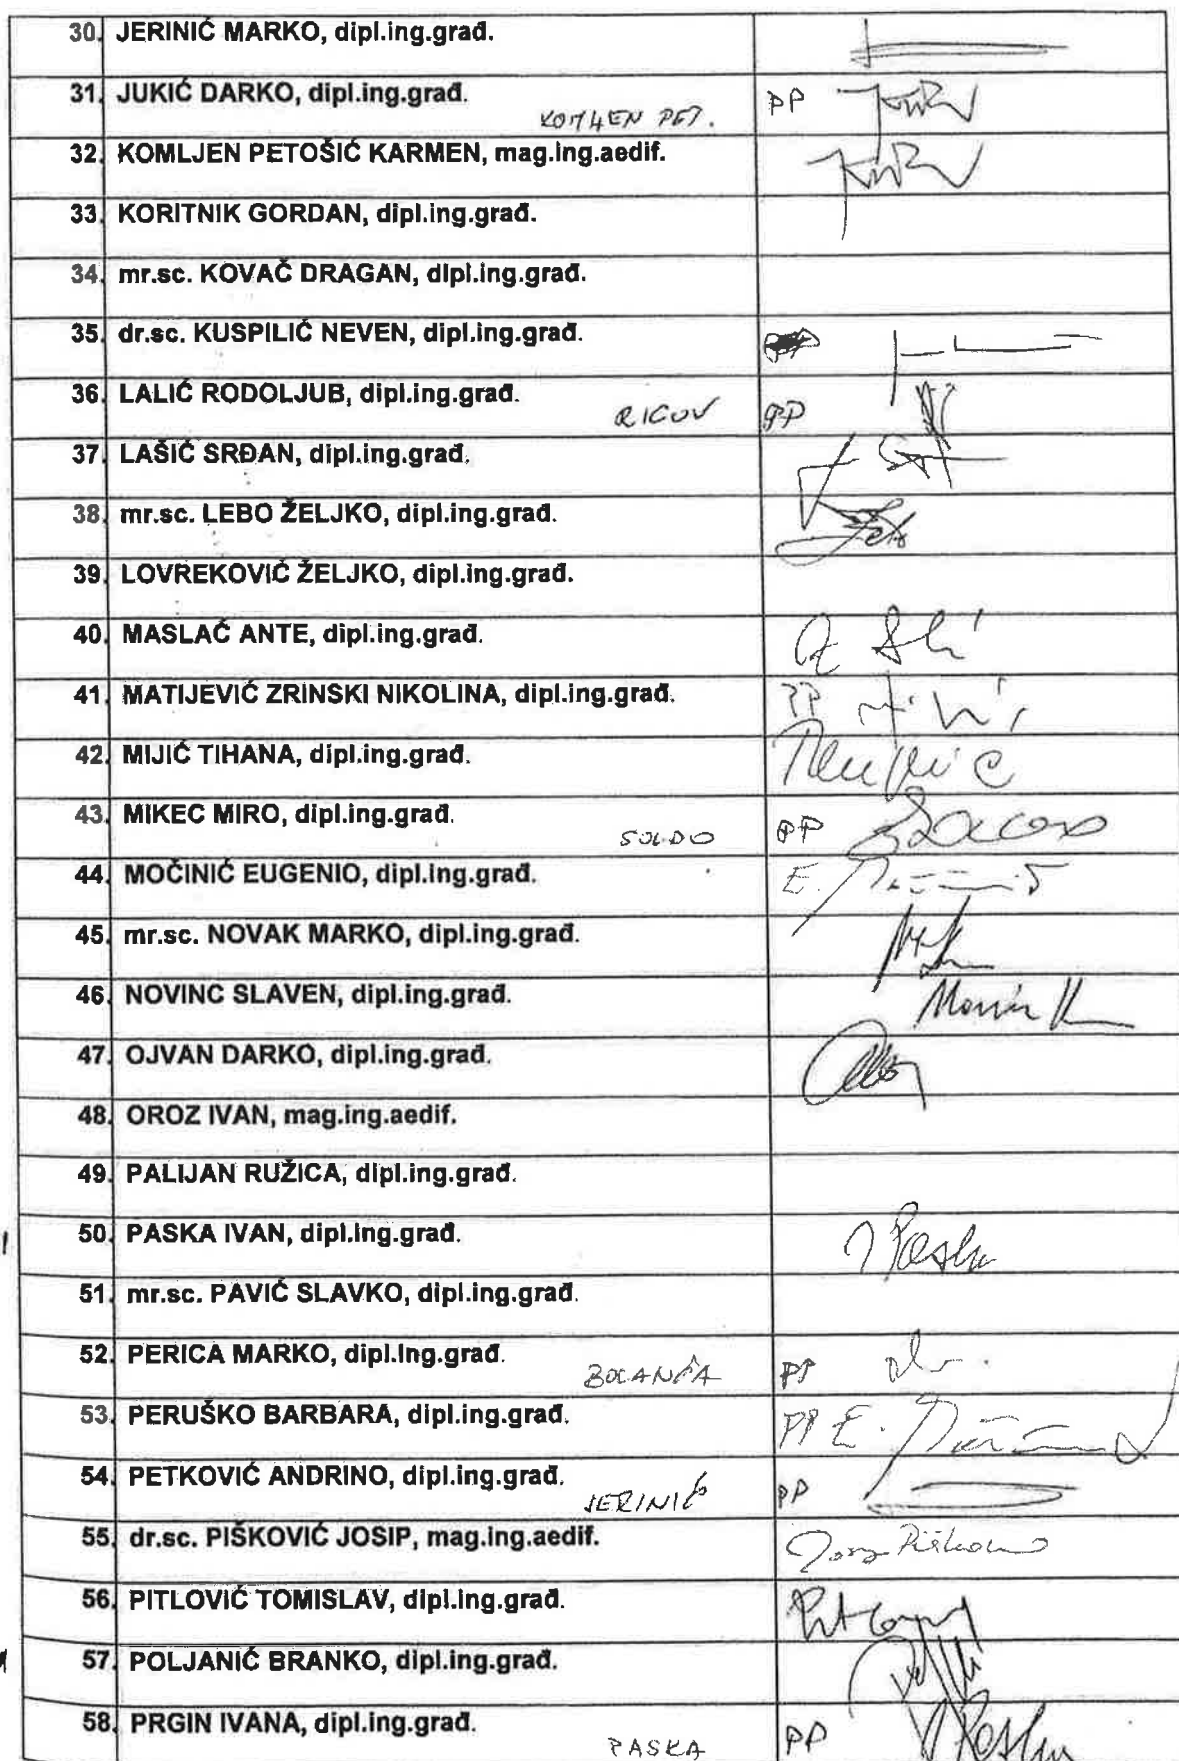 30. JERINIĆ MARKO, dipl.ing.građ.
31. JUKIĆ DARKO, dipl.ing.građ. KOMLJEN PET. PP
32. KOMLJEN PETOŠIĆ KARMEN, mag.ing.aedif.
33. KORITNIK GORDAN, dipl.ing.građ.
34. mr.sc. KOVAČ DRAGAN, dipl.ing.građ.
35. dr.sc. KUSPILIĆ NEVEN, dipl.ing.građ.
36. LALIĆ RODOLJUB, dipl.ing.građ. RICOV PP
37. LAŠIĆ SRĐAN, dipl.ing.građ.
38. mr.sc. LEBO ŽELJKO, dipl.ing.građ.
39. LOVREKOVIĆ ŽELJKO, dipl.ing.građ.
40. MASLAĆ ANTE, dipl.ing.građ.
41. MATIJEVIĆ ZRINSKI NIKOLINA, dipl.ing.građ. PP
42. MIJIĆ TIHANA, dipl.ing.građ.
43. MIKEC MIRO, dipl.ing.građ. SOLDO PP
44. MOČINIĆ EUGENIO, dipl.ing.građ. E.
45. mr.sc. NOVAK MARKO, dipl.ing.građ.
46. NOVINC SLAVEN, dipl.ing.građ.
47. OJVAN DARKO, dipl.ing.građ.
48. OROZ IVAN, mag.ing.aedif.
49. PALIJAN RUŽICA, dipl.ing.građ.
50. PASKA IVAN, dipl.ing.građ. I Paska
51. mr.sc. PAVIĆ SLAVKO, dipl.ing.građ.
52. PERICA MARKO, dipl.ing.građ. BOLANČA PP
53. PERUŠKO BARBARA, dipl.ing.građ. PP E.
54. PETKOVIĆ ANDRINO, dipl.ing.građ. JERINIĆ PP
55. dr.sc. PIŠKOVIĆ JOSIP, mag.ing.aedif.
56. PITLOVIĆ TOMISLAV, dipl.ing.građ.
57. POLJANIĆ BRANKO, dipl.ing.građ.
58. PRGIN IVANA, dipl.ing.građ. PASKA PP